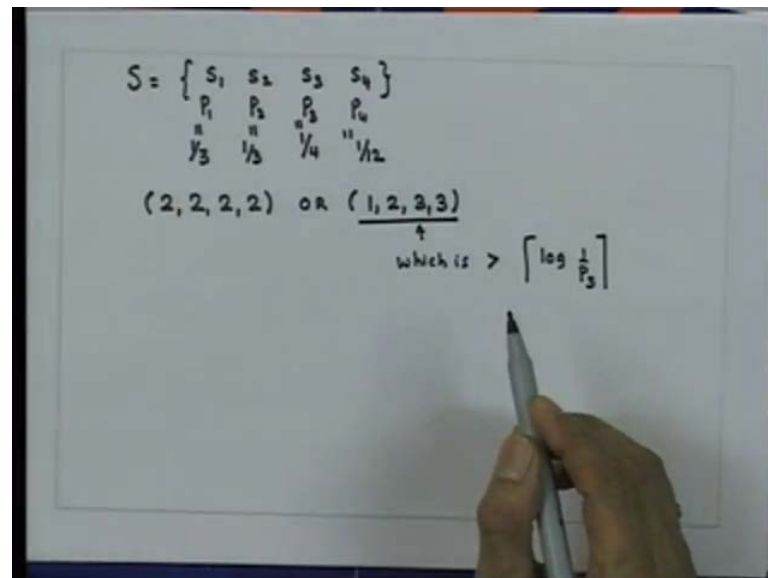 S = { S₁ S₂ S₃ S₄ }
P₁ P₂ P₃ P₄
" " " "
1/3 1/3 1/4 1/12
(2, 2, 2, 2) OR (1, 2, 3, 3)
↑
which is > ⌈log 1/P₃⌉